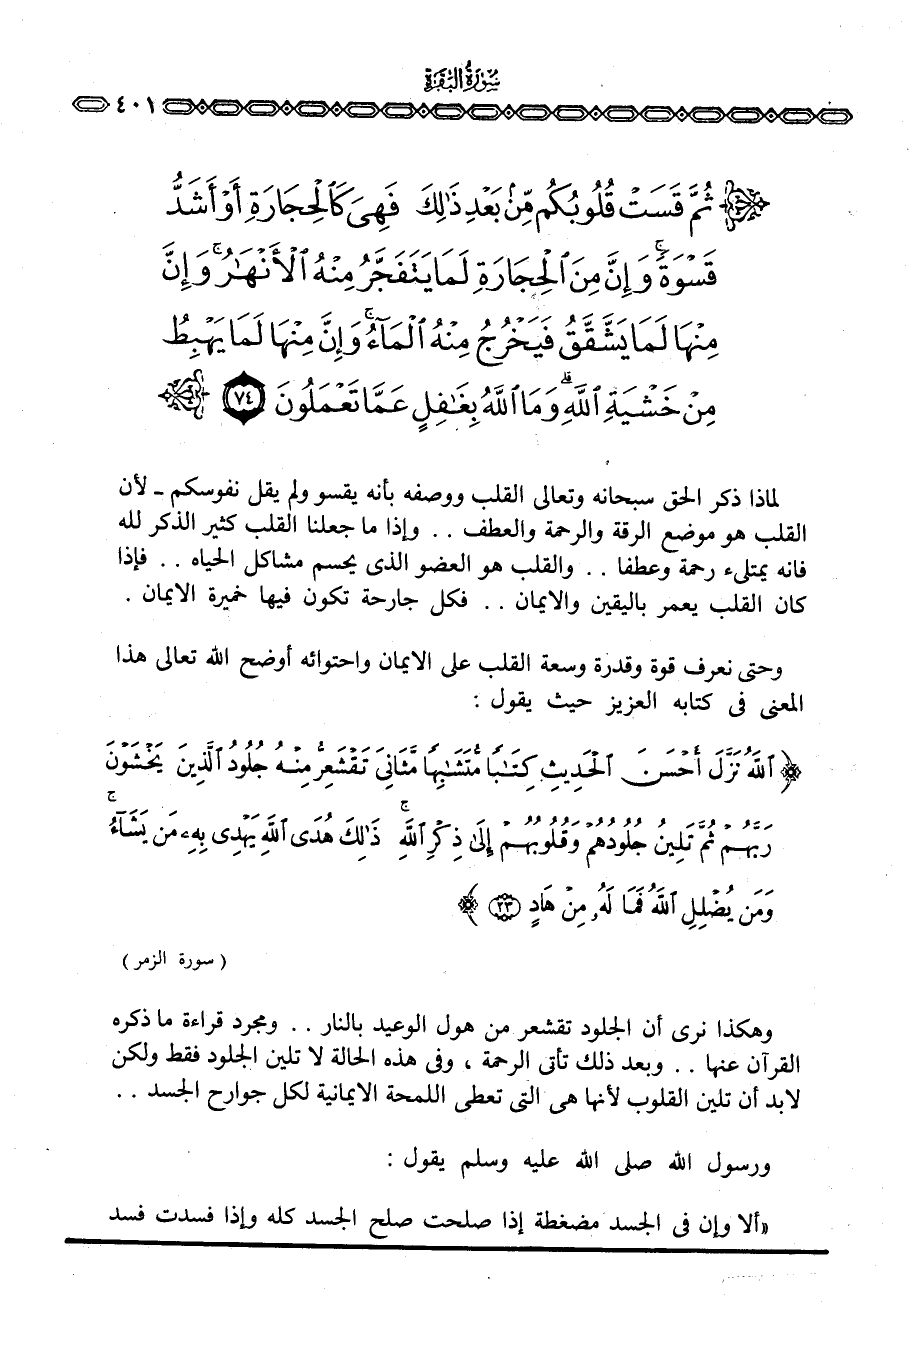 سُورَةُ البَقَرَة
٤٠١
ثُمَّ قَسَتْ قُلُوبُكُم مِّنۢ بَعْدِ ذَٰلِكَ فَهِىَ كَٱلْحِجَارَةِ أَوْ أَشَدُّ
قَسْوَةً ۚ وَإِنَّ مِنَ ٱلْحِجَارَةِ لَمَا يَتَفَجَّرُ مِنْهُ ٱلْأَنْهَٰرُ ۚ وَإِنَّ
مِنْهَا لَمَا يَشَّقَّقُ فَيَخْرُجُ مِنْهُ ٱلْمَآءُ ۚ وَإِنَّ مِنْهَا لَمَا يَهْبِطُ
مِنْ خَشْيَةِ ٱللَّهِ ۗ وَمَا ٱللَّهُ بِغَٰفِلٍ عَمَّا تَعْمَلُونَ ٧٤
لماذا ذكر الحق سبحانه وتعالى القلب ووصفه بأنه يقسو ولم يقل نفوسكم ـ لأن
القلب هو موضع الرقة والرحمة والعطف . . وإذا ما جعلنا القلب كثير الذكر لله
فانه يمتلىء رحمة وعطفا . . والقلب هو العضو الذى يحسم مشاكل الحياه . . فإذا
كان القلب يعمر باليقين والايمان . . فكل جارحة تكون فيها خميرة الايمان .
وحتى نعرف قوة وقدرة وسعة القلب على الايمان واحتوائه أوضح الله تعالى هذا
المعنى فى كتابه العزيز حيث يقول :
﴿ ٱللَّهُ نَزَّلَ أَحْسَنَ ٱلْحَدِيثِ كِتَٰبًا مُّتَشَٰبِهًا مَّثَانِىَ تَقْشَعِرُّ مِنْهُ جُلُودُ ٱلَّذِينَ يَخْشَوْنَ
رَبَّهُمْ ثُمَّ تَلِينُ جُلُودُهُمْ وَقُلُوبُهُمْ إِلَىٰ ذِكْرِ ٱللَّهِ ۚ ذَٰلِكَ هُدَى ٱللَّهِ يَهْدِى بِهِۦ مَن يَشَآءُ ۚ
وَمَن يُضْلِلِ ٱللَّهُ فَمَا لَهُۥ مِنْ هَادٍ ٢٣ ﴾
( سورة الزمر )
وهكذا نرى أن الجلود تقشعر من هول الوعيد بالنار . . ومجرد قراءة ما ذكره
القرآن عنها . . وبعد ذلك تأتى الرحمة ، وفى هذه الحالة لا تلين الجلود فقط ولكن
لابد أن تلين القلوب لأنها هى التى تعطى اللمحة الايمانية لكل جوارح الجسد . .
ورسول الله صلى الله عليه وسلم يقول :
«ألا وإن فى الجسد مضغطة إذا صلحت صلح الجسد كله وإذا فسدت فسد